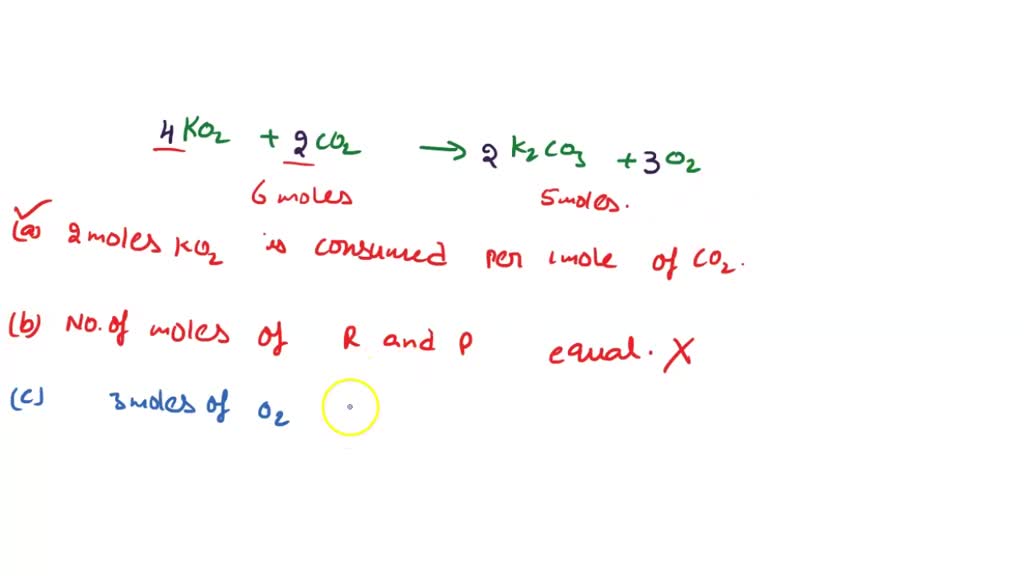 4KO₂ + 2CO₂ → 2 K₂CO₃ + 3O₂
6 moles 5moles.
✓
(a) 2 moles KO₂ is consumed per 1mole of CO₂.
(b) No. of moles of R and P equal. X
(c) 3 moles of O₂